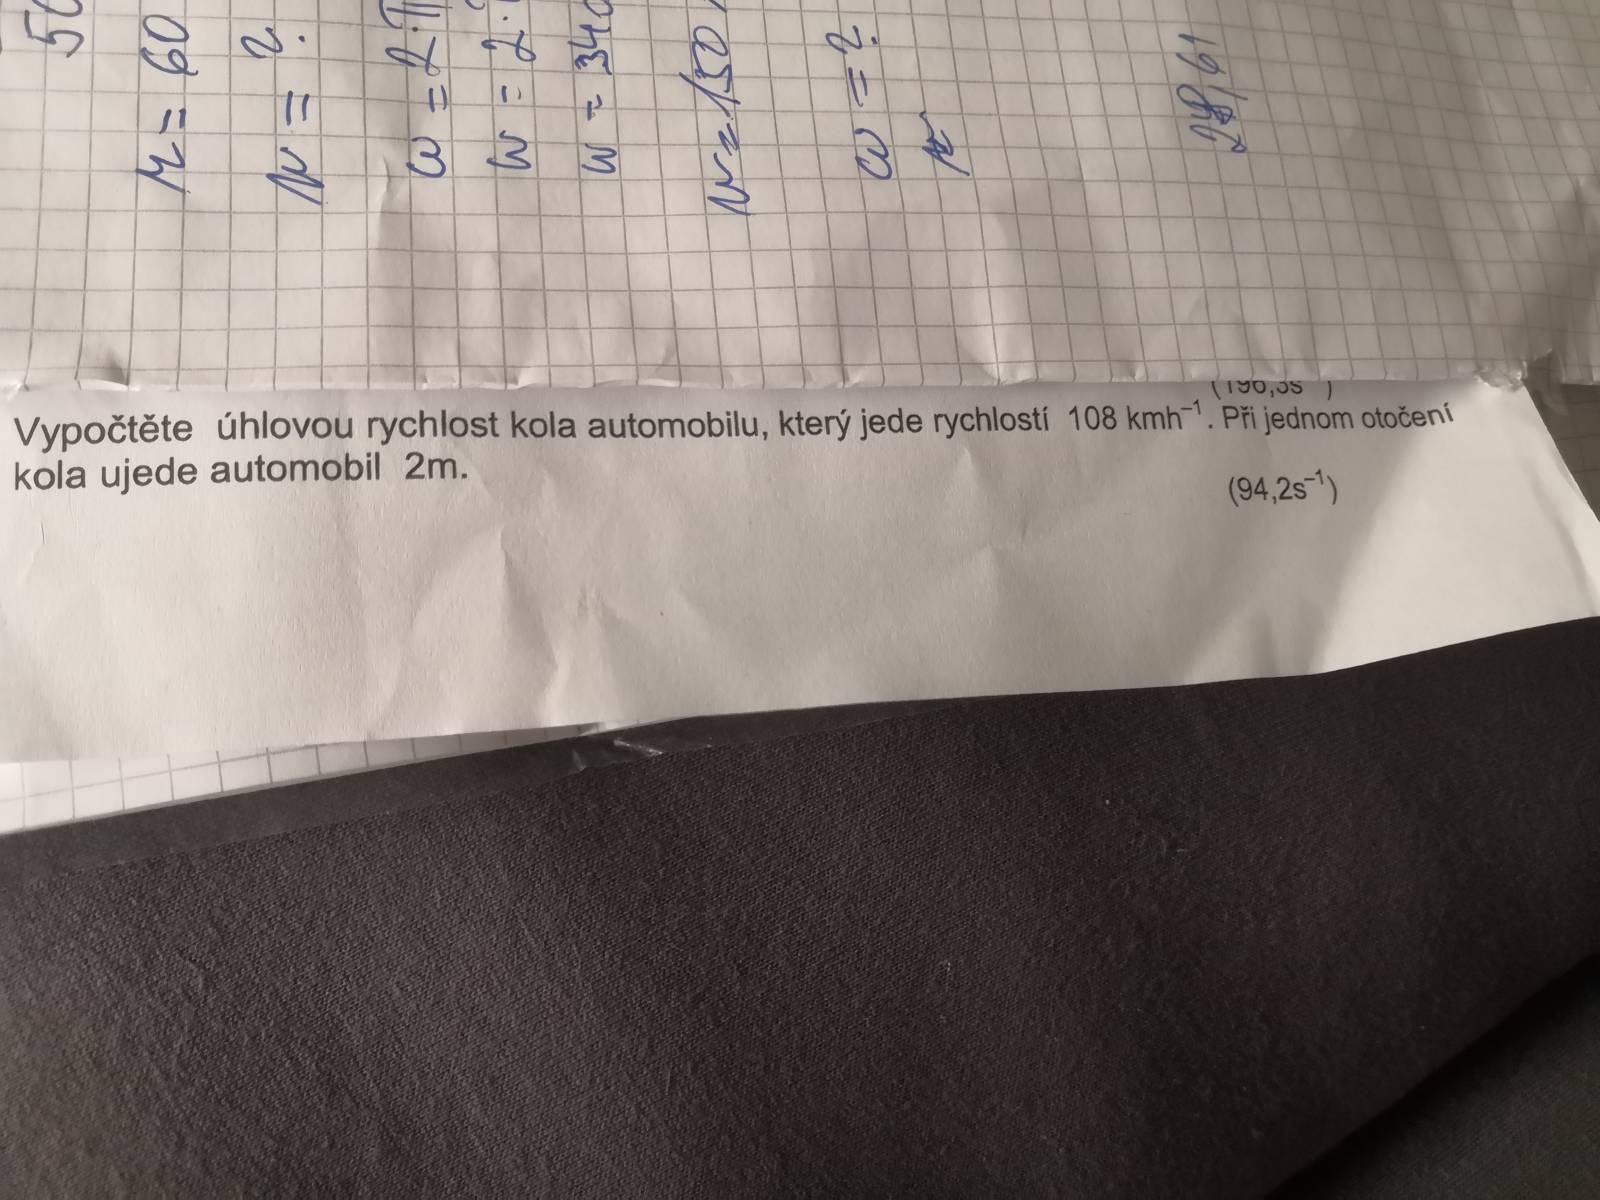 50
r = 60
v = ?
ω = 2·π
ω = 2·
ω = 340
v = 150
ω = ?
(196,3s )
Vypočtěte úhlovou rychlost kola automobilu, který jede rychlostí 108 kmh⁻¹. Při jednom otočení
kola ujede automobil 2m.
(94,2s⁻¹)